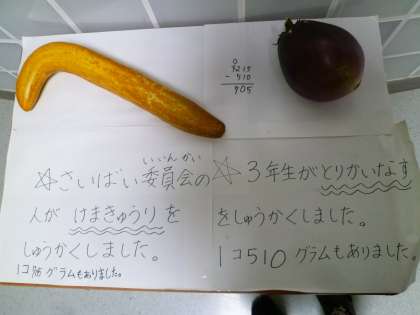 0
1215
- 510
705
いいんかい
☆さいばい委員会の
人が けまきゅうり を
しゅうかくしました。
1コ グラムもありました。
☆3年生がとりかいなす
をしゅうかくしました。
1コ510グラムもありました。